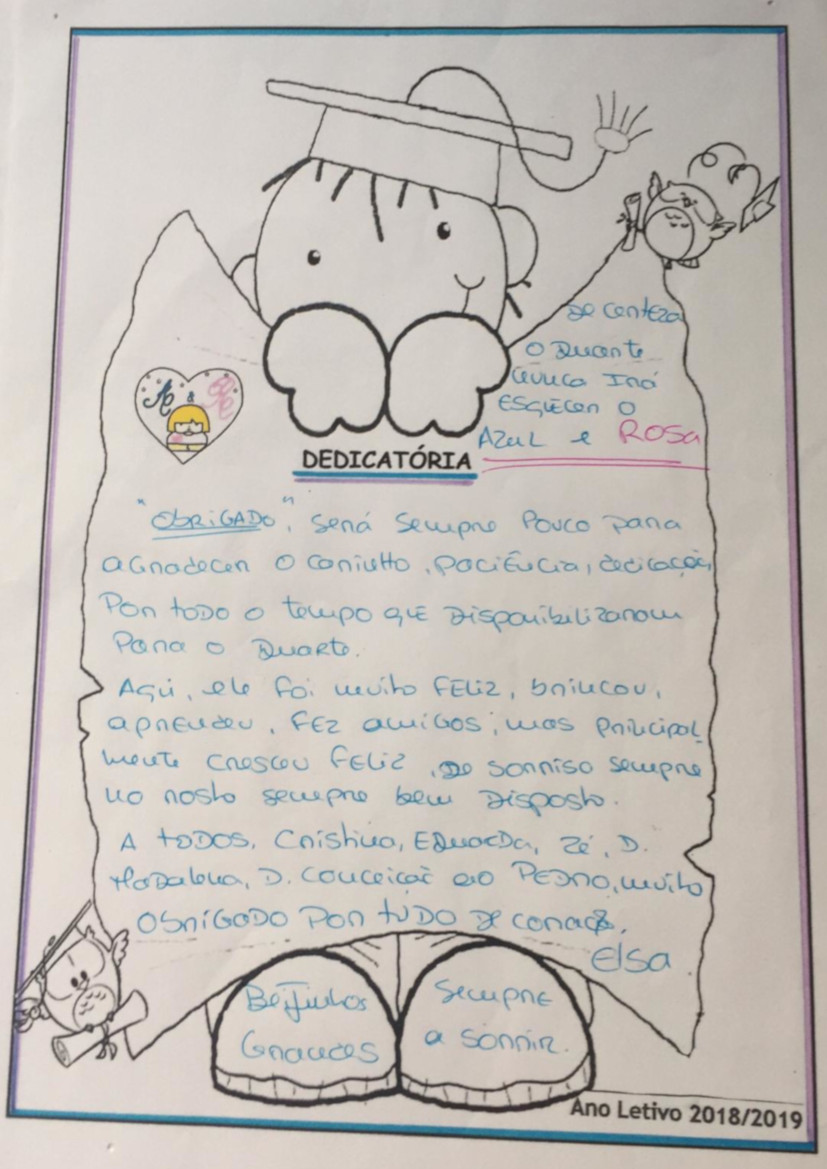 De certeza
o Duarte
nunca Irá
ESQUECER O
AZUL e ROSA
DEDICATÓRIA
"OBRIGADO", será sempre Pouco para
agradecer o carinho, paciência, dedicação,
Por todo o tempo que Disponibilizaram
Para o Duarte.
Aqui, ele foi muito FELIZ, brincou,
aprendeu, FEZ amigos, mas principal_
mente cresceu FELIZ, de sorriso sempre
no rosto sempre bem Disposto.
A TODOS, Cristina, Eduarda, Zé, D.
Madalena, D. Conceição e ao PEDRO, muito
OBRIGADO Por tudo de coração.
Elsa
Beijinhos
Grandes
Sempre
a sorrir.
Ano Letivo 2018/2019